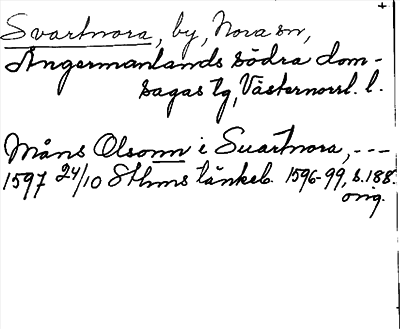 Svartnora, by, Nora sn,
Ångermanlands södra dom-
sagas tg, Västernorrl. l.
Måns Olsonn i Suartnora, ---
1597 24/10 Sthms tänkeb. 1596-99, s. 188.
orig.